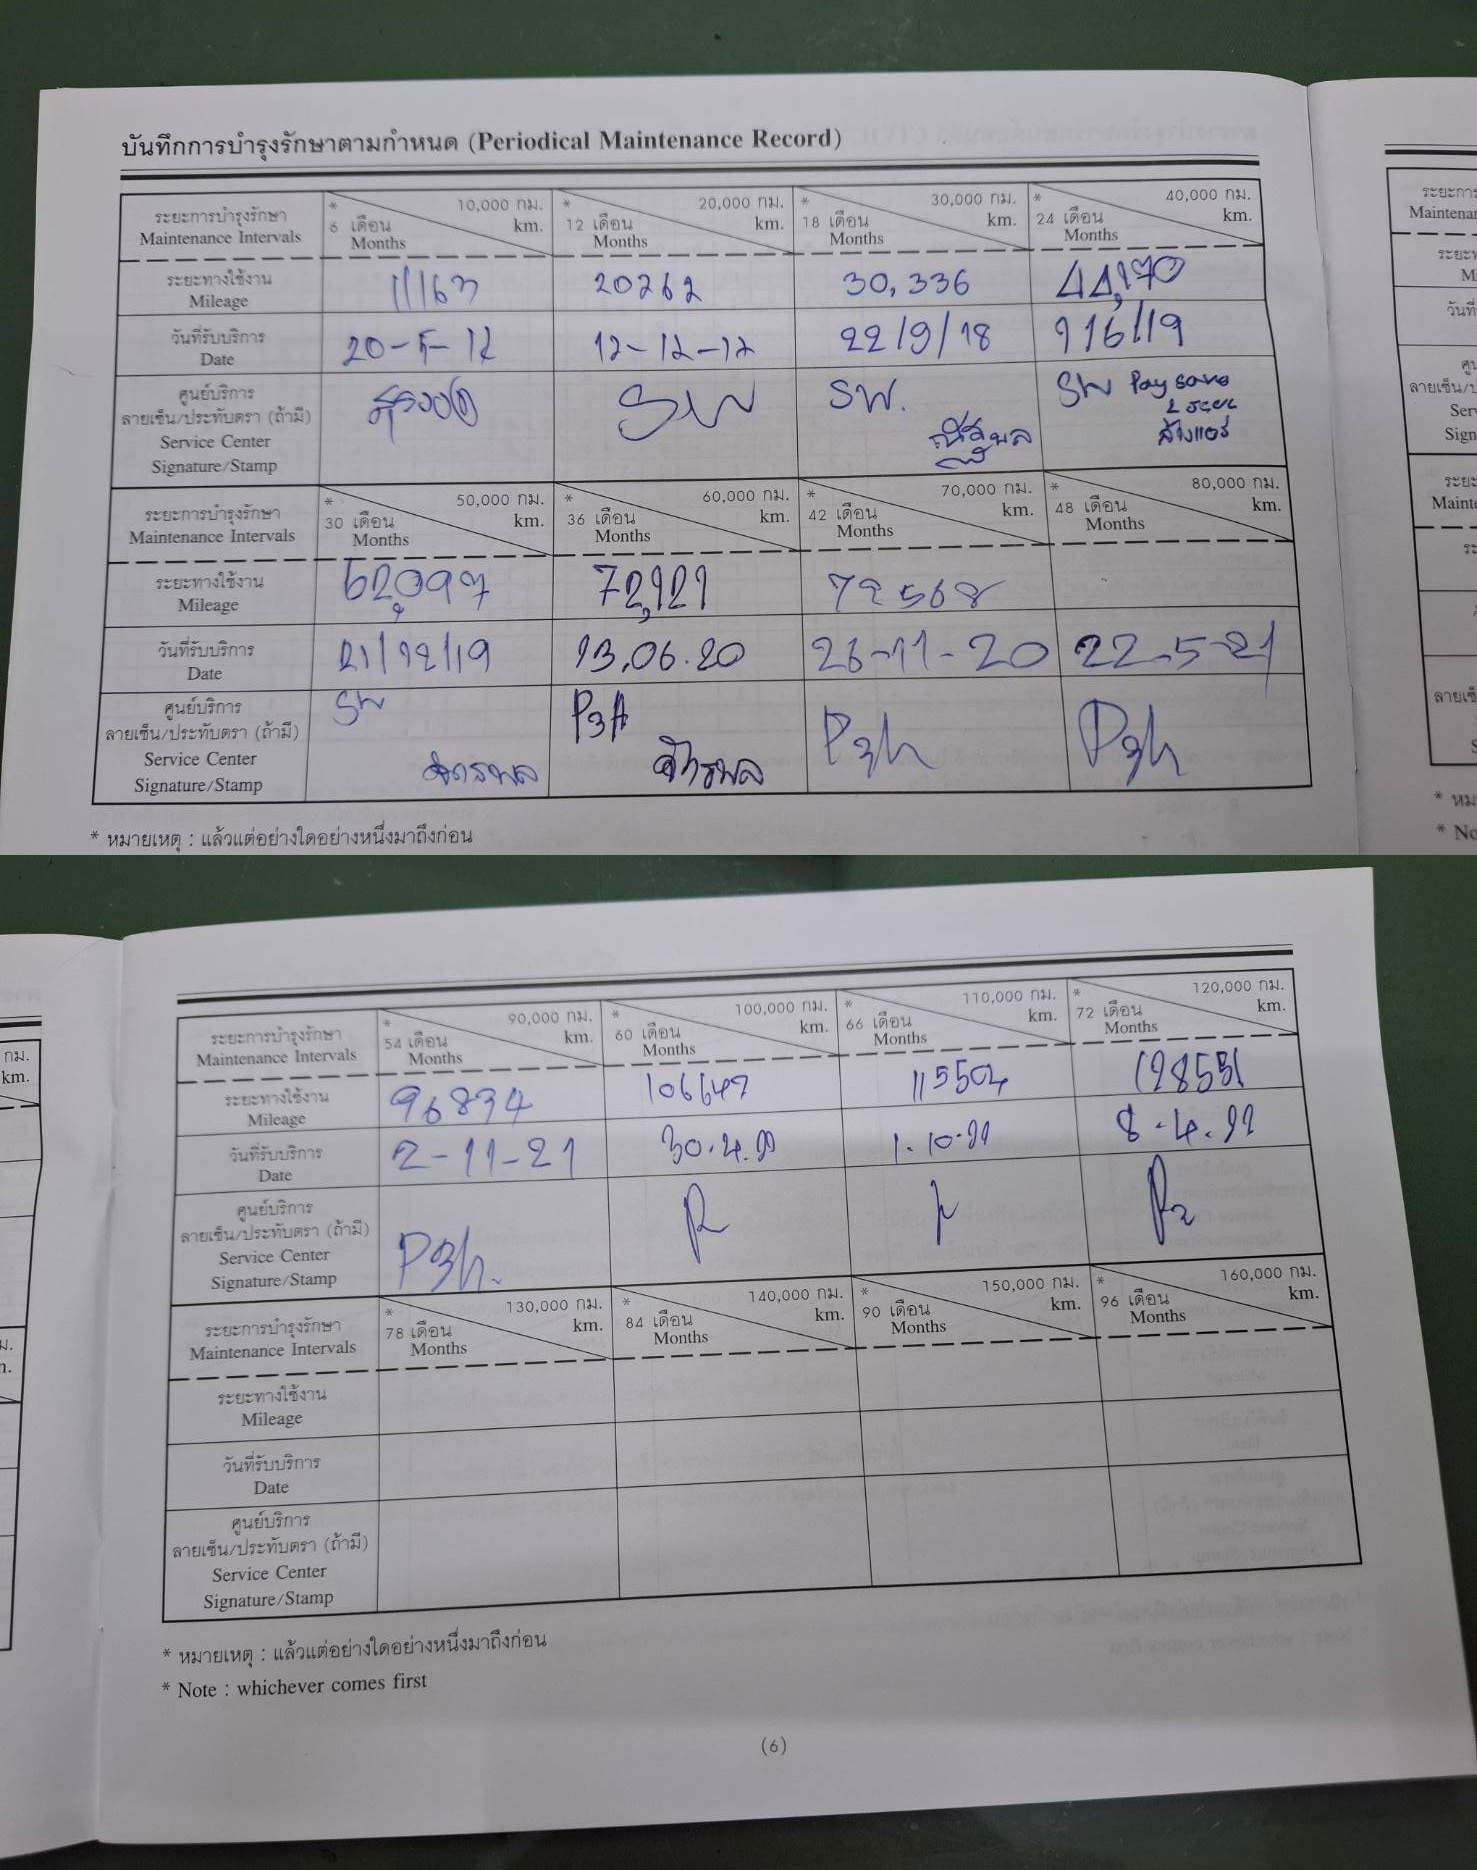 บันทึกการบำรุงรักษาตามกำหนด (Periodical Maintenance Record)
ระยะการบำรุงรักษา
Maintenance Intervals
* 6 เดือน Months 10,000 กม. km.
* 12 เดือน Months 20,000 กม. km.
* 18 เดือน Months 30,000 กม. km.
* 24 เดือน Months 40,000 กม. km.
ระยะทางใช้งาน
Mileage
11163 20262 30,336 44,170
วันที่รับบริการ
Date
12-12-17 22/9/18
ศูนย์บริการ
ลายเซ็น/ประทับตรา (ถ้ามี)
Service Center
Signature/Stamp
SW SW. SW Pay save
2 ระยะ
ล้างแอร์
ระยะการบำรุงรักษา
Maintenance Intervals
* 30 เดือน Months 50,000 กม. km.
* 36 เดือน Months 60,000 กม. km.
* 42 เดือน Months 70,000 กม. km.
* 48 เดือน Months 80,000 กม. km.
ระยะทางใช้งาน
Mileage
62,097 72,921
วันที่รับบริการ
Date
21/12/19 13.06.20 26-11-20 22-5-21
ศูนย์บริการ
ลายเซ็น/ประทับตรา (ถ้ามี)
Service Center
Signature/Stamp
SW
* หมายเหตุ : แล้วแต่อย่างใดอย่างหนึ่งมาถึงก่อน
ระยะการบำรุงรักษา
Maintenance Intervals
* 54 เดือน Months 90,000 กม. km.
* 60 เดือน Months 100,000 กม. km.
* 66 เดือน Months 110,000 กม. km.
* 72 เดือน Months 120,000 กม. km.
ระยะทางใช้งาน
Mileage
96834 106647 115504 128551
วันที่รับบริการ
Date
2-11-21 30.4.22 1.10.22
ศูนย์บริการ
ลายเซ็น/ประทับตรา (ถ้ามี)
Service Center
Signature/Stamp
ระยะการบำรุงรักษา
Maintenance Intervals
* 78 เดือน Months 130,000 กม. km.
* 84 เดือน Months 140,000 กม. km.
* 90 เดือน Months 150,000 กม. km.
* 96 เดือน Months 160,000 กม. km.
ระยะทางใช้งาน
Mileage
วันที่รับบริการ
Date
ศูนย์บริการ
ลายเซ็น/ประทับตรา (ถ้ามี)
Service Center
Signature/Stamp
* หมายเหตุ : แล้วแต่อย่างใดอย่างหนึ่งมาถึงก่อน
* Note : whichever comes first
(6)